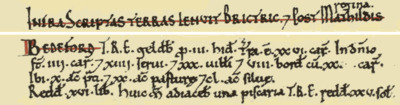 regina.
INFRA SCRIPTAS TERRAS TENUIT BRICTRIC, 7 POST MATHILDIS
BEDEFORD T.R.E. geldb̄ ꝑ .iii. hid̄. Tr̄a .ē. xxvi. car̄. In dn̄io
st̄ .iiii. car̄. 7 xiiii. serui. 7 xxx. uilli 7 viii. bord̄ cū .xx. car̄.
Ibi .x. ac̄ p̄ti. 7 xx. ac̄ pasturę 7 cl. ac̄ siluę.
Redd̄ .xvi. lib̄. Huic m̄ adiacet una piscaria T.R.E. redd̄ .xxv. sol̄.